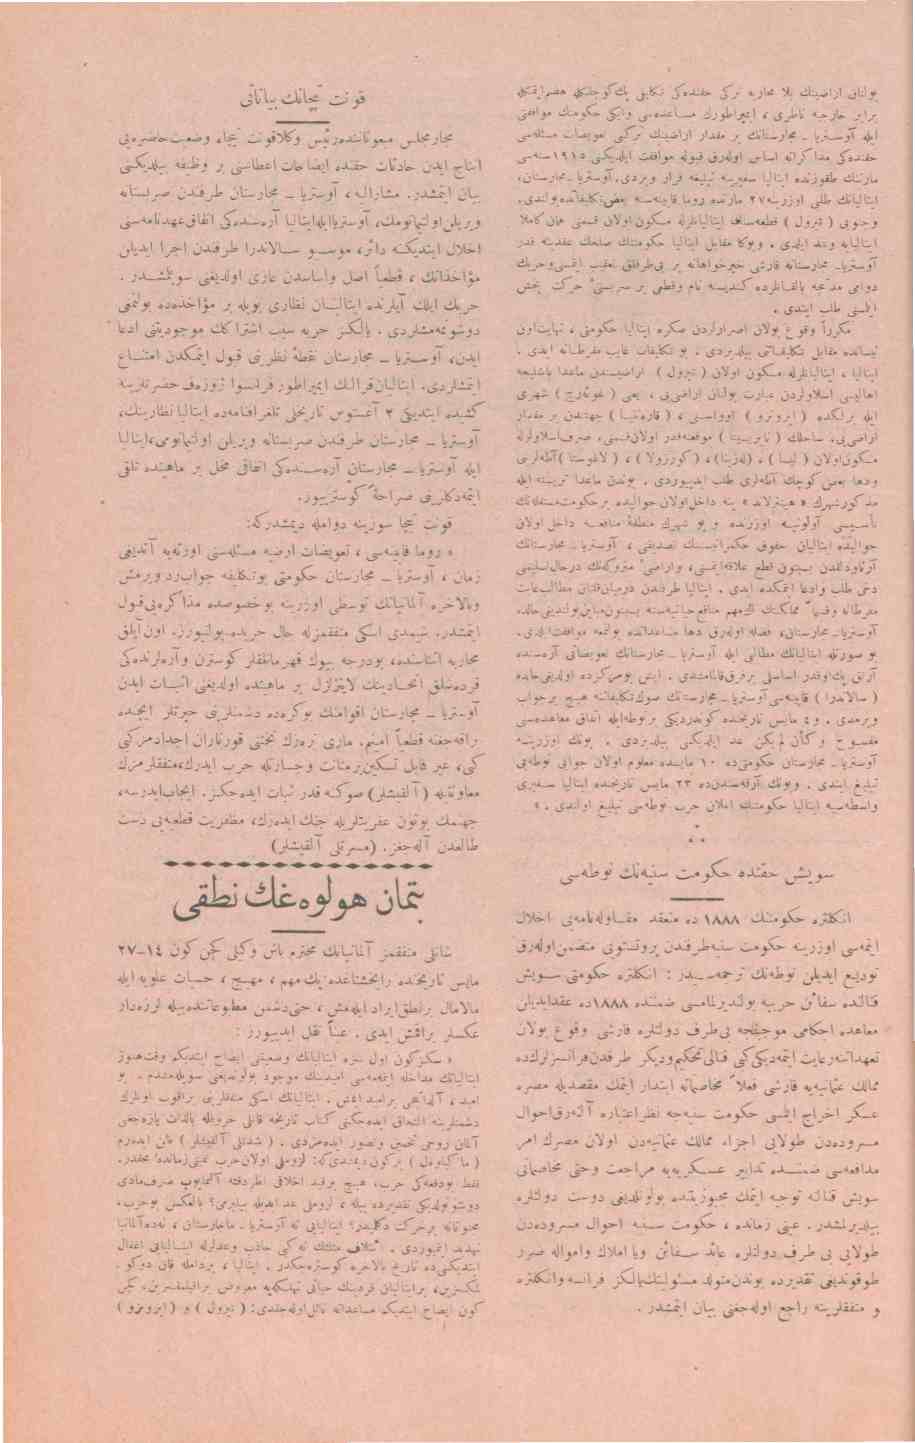 بولنان اراضینك بلا محاربه تركی حقنده‌كی تكلیفی پك كوچلكله هضم ایتمكله
برابر خارجیه ناظری ، ایمپراطورك مساعده‌سی وایكی حكومتك موافقتی
ایله آوستریا ـ مجارستانك بر مقدار اراضینك تركنی تعویضات مسئله‌سی
حقنده‌كی مذاكراته اساس اوله‌رق قبوله موافقت ایلدیكنی ١٩١٥ سنه‌سی
مارتنك طقوزنده ایتالیا سفیرینه تبلیغه قرار ویردی. آوستریا ـ مجارستان،
ایتالیانك طلبی اوزرینه ٢٧ مارتده روما قابینه‌سنه بعض تكلیفاتده بولندی.
وجنوبی ( تیرول ) قطعه‌سنك ایتالیانلرله مسكون اولان قسمنی همان كاملا
ایتالیایه وعد ایلدی . وبوكا مقابل ایتالیا حكومتنك صلحك عقدینه قدر
آوستریا ـ مجارستانه قارشی خیرخواهانه بر بی‌طرفلق تعقیب ایتمسنی وحربك
دوامی مدتجه بالقانلرده كندیسنه تام وقطعی بر سربستی حركت بخش
ایتمسنی طلب ایتدی .
مكرراً وقوع بولان اصرارلردن صكره ایتالیا حكومتی ، نهایت اون
نیسانده مقابل تكلیفاتنی بیلدیردی . بو تكلیفات غایت مفرطانه ایدی .
ایتالیا ، ایتالیانلرله مسكون اولان ( تیرول ) اراضیسندن ماعدا باشلیجه
اهالیسی اسلاولردن عبارت بولنان اراضی‌یی ، یعنی ( غوئه‌رچ ) شهری
ایله برلكده ( ایزونزو ) اوواسنی ، ( قارنتیا ) جهتندن بر مقدار
اراضی‌یی، ساحلك ( نابرزینا ) موقعنه قدر اولان قسمنی، صرف اسلاولرله
مسكون اولان ( لیسا ) ، (له‌زینا) ، ( كورزولا ) ، ( لاغوستا ) آطه‌لرینی
ودها بعض كوچك آطه‌لری طلب ایدییوردی . بوندن ماعدا تریسته ایله
مذكور شهرك « هینترلاند » ینه داخل اولان حوالیده بر حكومت مستقله‌نك
تأسیسی آولونیه اوزرنده و بو شهرك منطقهٔ منافعنه داخل اولان
حوالیده ایتالیان حقوق حكمرانیسنك تصدیقنی ، آوستریا ـ مجارستانك
آرناودلقدن بسبتون قطع علاقه ایتمسی، واراضیٔ متروكه‌نك درحال تسلیمنی
دخی طلب وادعا ایتمكده ایدی . ایتالیا طرفندن درمیان قلنان مطالبات
مفرطانه وقسماً ممالكنك اك مهم منافع حیاتیه‌سنه بسبتون مباین بولندیغی حالده
آوستریا ـ مجارستان، فضله اوله‌رق دها مساعداتده بولنمغه موافقت ایلدی.
بو صورتله ایتالیانك مطالبی ایله آوستریا ـ مجارستانك تعویضاتی آره‌سنده
آرتق پك اوقدر اساسلی بر فرق قالمامشدی . ایش بو مركزده اولدیغی حالده
( سالاندرا ) قابینه‌سی آوستریا ـ مجارستانك صوك تكلیفاتنه هیچ بر جواب
ویرمدی . و ٤ مایس تاریخنده كوندردیكی بر نوطه ایله اتفاق معاهده‌سنی
مفسوخ وكأن لم یكن عد ایلدیكنی بیلدیردی . بونك اوزرینه
آوستریا ـ مجارستان حكومتی‌ده ١٠ مایسده معلوم اولان جوابی نوطه‌یی
تبلیغ ایتدی . وبونك آرقه‌سندن‌ده ٢٣ مایس تاریخنده ایتالیا سفیری
واسطه‌سیله ایتالیا حكومتنك اعلان حرب نوطه‌سی تبلیغ اولندی . »
⁂
سویش حقنده حكومت سنیه‌نك نوطه‌سی
انكلتره حكومتنك ١٨٨٨ ده منعقد مقاوله‌نامه‌یی اخلال
ایتمه‌سی اوزرینه حكومت سنیه طرفندن پروتستویی متضمن اوله‌رق
تودیع ایدیلن نوطه‌نك ترجمه‌سیدر : انكلتره حكومتی سویش
قنالنده سفائن حربیه بولندیرلمامسی ضمننده ١٨٨٨ ده عقد ایدیلن
معاهده احكامی موجبنجه بی‌طرف دولتلره قارشی وقوع بولان
تعهداتنه رعایت ایتمه‌دیكی كبی قنالی تحكیم ودیكر طرفدن فرانسزلرك‌ده
ممالك عثمانیه‌یه قارشی فعلاً مخاصماته ابتدار ایتمك مقصدیله مصره
عسكر اخراج ایتمسی حكومت سنیه‌جه نظر اعتباره آلنه‌رق احوال
مسروده‌دن طولایی اجزاء ممالك عثمانیه‌دن اولان مصرك امر
مدافعه‌سی ضمننده تدابیر عسكریه‌یه مراجعت وحتی مخاصماتی
سویش قنالنه توجیه ایتمك مجبوریتنده بولوندیغنی دوست دولتلره
بیلدیرلمشدر . عینی زمانده ، حكومت سنیه احوال مسروده‌دن
طولایی بی طرف دولتلره عائد سفائن ویا املاك وامواله ضرر
طوقوندیغی تقدیرده بوندن متولد مسئولیتك یالكز فرانسه وانكلتره
و متفقلرینه راجع اوله‌جغنی بیان ایتمشدر .
قونت تیچانك بیاناتی
مجار مجلس مبعوثاننده رئیس وكلا قونت تیچا، وضعیت حاضره‌یی
انتاج ایدن حادثات حقنده ایضاحات اعطاسنی بر وظیفه بیلدیكنی
بیان ایتمشدر. مشارالیه ، آوستریا ـ مجارستان طرفندن صربستانه
ویریلن اولتیماتومك، آوستریا ایله ایتالیا آره‌سنده‌كی اتفاق عهدنامه‌سنی
اخلال ایتدیكنه دائر، موسیو سالاندرا طرفندن اجرا ایدیلن
مؤاخذاتك ، قطعیاً اصل واساسدن عاری اولدیغنی سویلمشدر .
حربك ایلك آیلرنده ایتالیان نظاری بویله بر مؤاخذه‌ده بولنمغی
دوشونمه‌مشلردی . یالكز حربه سبب اشتراكك موجودیتنی ادعا
ایدن، آوستریا ـ مجارستان نقطهٔ نظرینی قبول ایتمكدن امتناع
ایتمشلردی. ایتالیان قرالك ایمپراطور فرانسوا ژوزه‌ف حضرتلرینه
كشیده ایتدیكی ٢ آغستوس تاریخلی تلغرافنامه‌ده ایتالیا نظارینك،
آوستریا ـ مجارستان طرفندن صربستانه ویریلن اولتیماتومی، ایتالیا
ایله آوستریا ـ مجارستان آره‌سنده‌كی اتفاقی مخل بر ماهیتده تلقی
ایتمه‌دكلرینی صراحةً كوستریور.
قونت تیچا سوزینه دوامله دیمشدركه:
« روما قابینه‌سی ، تعویضات ارضیه مسئله‌سنی اورته‌یه آتدیغی
زمان ، آوستریا ـ مجارستان حكومتی بو تكلیفه جواب رد ویرمش
وبالاخره آلمانیانك توسطی اوزرینه بو خصوصده مذاكره‌یی قبول
ایتمشدر. شیمدی اسكی متفقمزله حال حربده بولنیورز. اون آیلق
محاربه اثناسنده، بودرجه بیوك قهرمانلقلر كوسترن وآره‌لرنده‌كی
قرده‌شلق اتحادینك لایتزلزل بر ماهیتده اولدیغنی اثبات ایدن
آوستریا ـ مجارستان اقوامنك بوكره‌ده دشمنلرینی حیرتلر ایچنده
براقه‌جغنه قطعیاً امینم. ماری ترەزك تختنی قورتاران اجدادمز كبی
كبی، غیر قابل تسكین بر متانت وجسارتله حرب ایدرك، متفقلرمزك
معاونتیله ( آلقیشلر) صوكنه قدر ثبات ایده‌جكز . ایجاب ایدرسه،
جهنمك بوتون عفریتلریله جنك ایده‌رك، مظفریت قطعیه‌یی دست
طالعدن آله‌جغز. (مسرتلی آلقیشلر)
بتمان هولوه‌غك نطقی
شانلی متفقمز آلمانیانك محترم باش وكیلی كچن كون ١٤ـ٢٧
مایس تاریخنده رایخشتاغده پك مهم ، مهیج ، حسیات علویه ایله
مالامال بر نطق ایراد ایله‌مش ، حتی دشمن مطبوعاتنده بیله لرزه‌دار
عكسلر براقمش ایدی . عیناً نقل ایدییورز :
« سكز كون اول سزه ایتالیانك وضعیتنی ایضاح ایتدیكم وقت هنوز
ایتالیانك مداخله ایتمه‌مسی امیدینك موجود بولوندیغنی سویله‌مشدم . بو
امید ، آلداتیجی بر امید ایمش . ایتالیانك اسكی متفقلرینی براقوب اونلرك
دشمنلرینه التحاق ایده‌جكنی كتاب تاریخه قانلی حرفلرله بالذات یازه‌جغنی
آلمان روحی تخمین وتصور ایده‌مزدی . ( شدتلی آلقیشلر ) ظن ایدەرم
( ماكیاوەل ) بر كون دیمشدی‌كه: لزوملی اولان حرب عینی زمانده محقدر.
فقط بودفعه‌كی حرب، هیچ بر قید اخلاقی اطرافنده آلنمایوب صرف مادی
دوشونولدیكی تقدیرده بیله ، لزوملی عد ایدیله بیلیرمی؟ بالعكس بو حرب،
مجنونانه بر حركت دكلمیدر؟ ایتالیایی نه آوستریا ـ مجارستان ، نه‌ده آلمانیا
تهدید ایتمیوردی . ائتلاف مثلثك نه كبی جاذب وعدلرله ایتالیانی اغفال
ایتدیكنی‌ده تاریخ بالاخره كوستره‌جكدر . ایتالیا ، بر دامله قان دوكو
لمكسزین، بر ایتالیان فردینك حیاتی تهلكه‌یه معروض براقیلمقسزین، كچن
كون ایضاح ایتدیكم مساعداته نائل اوله‌جقدی: ( تیرول ) و ( ایزونزو )